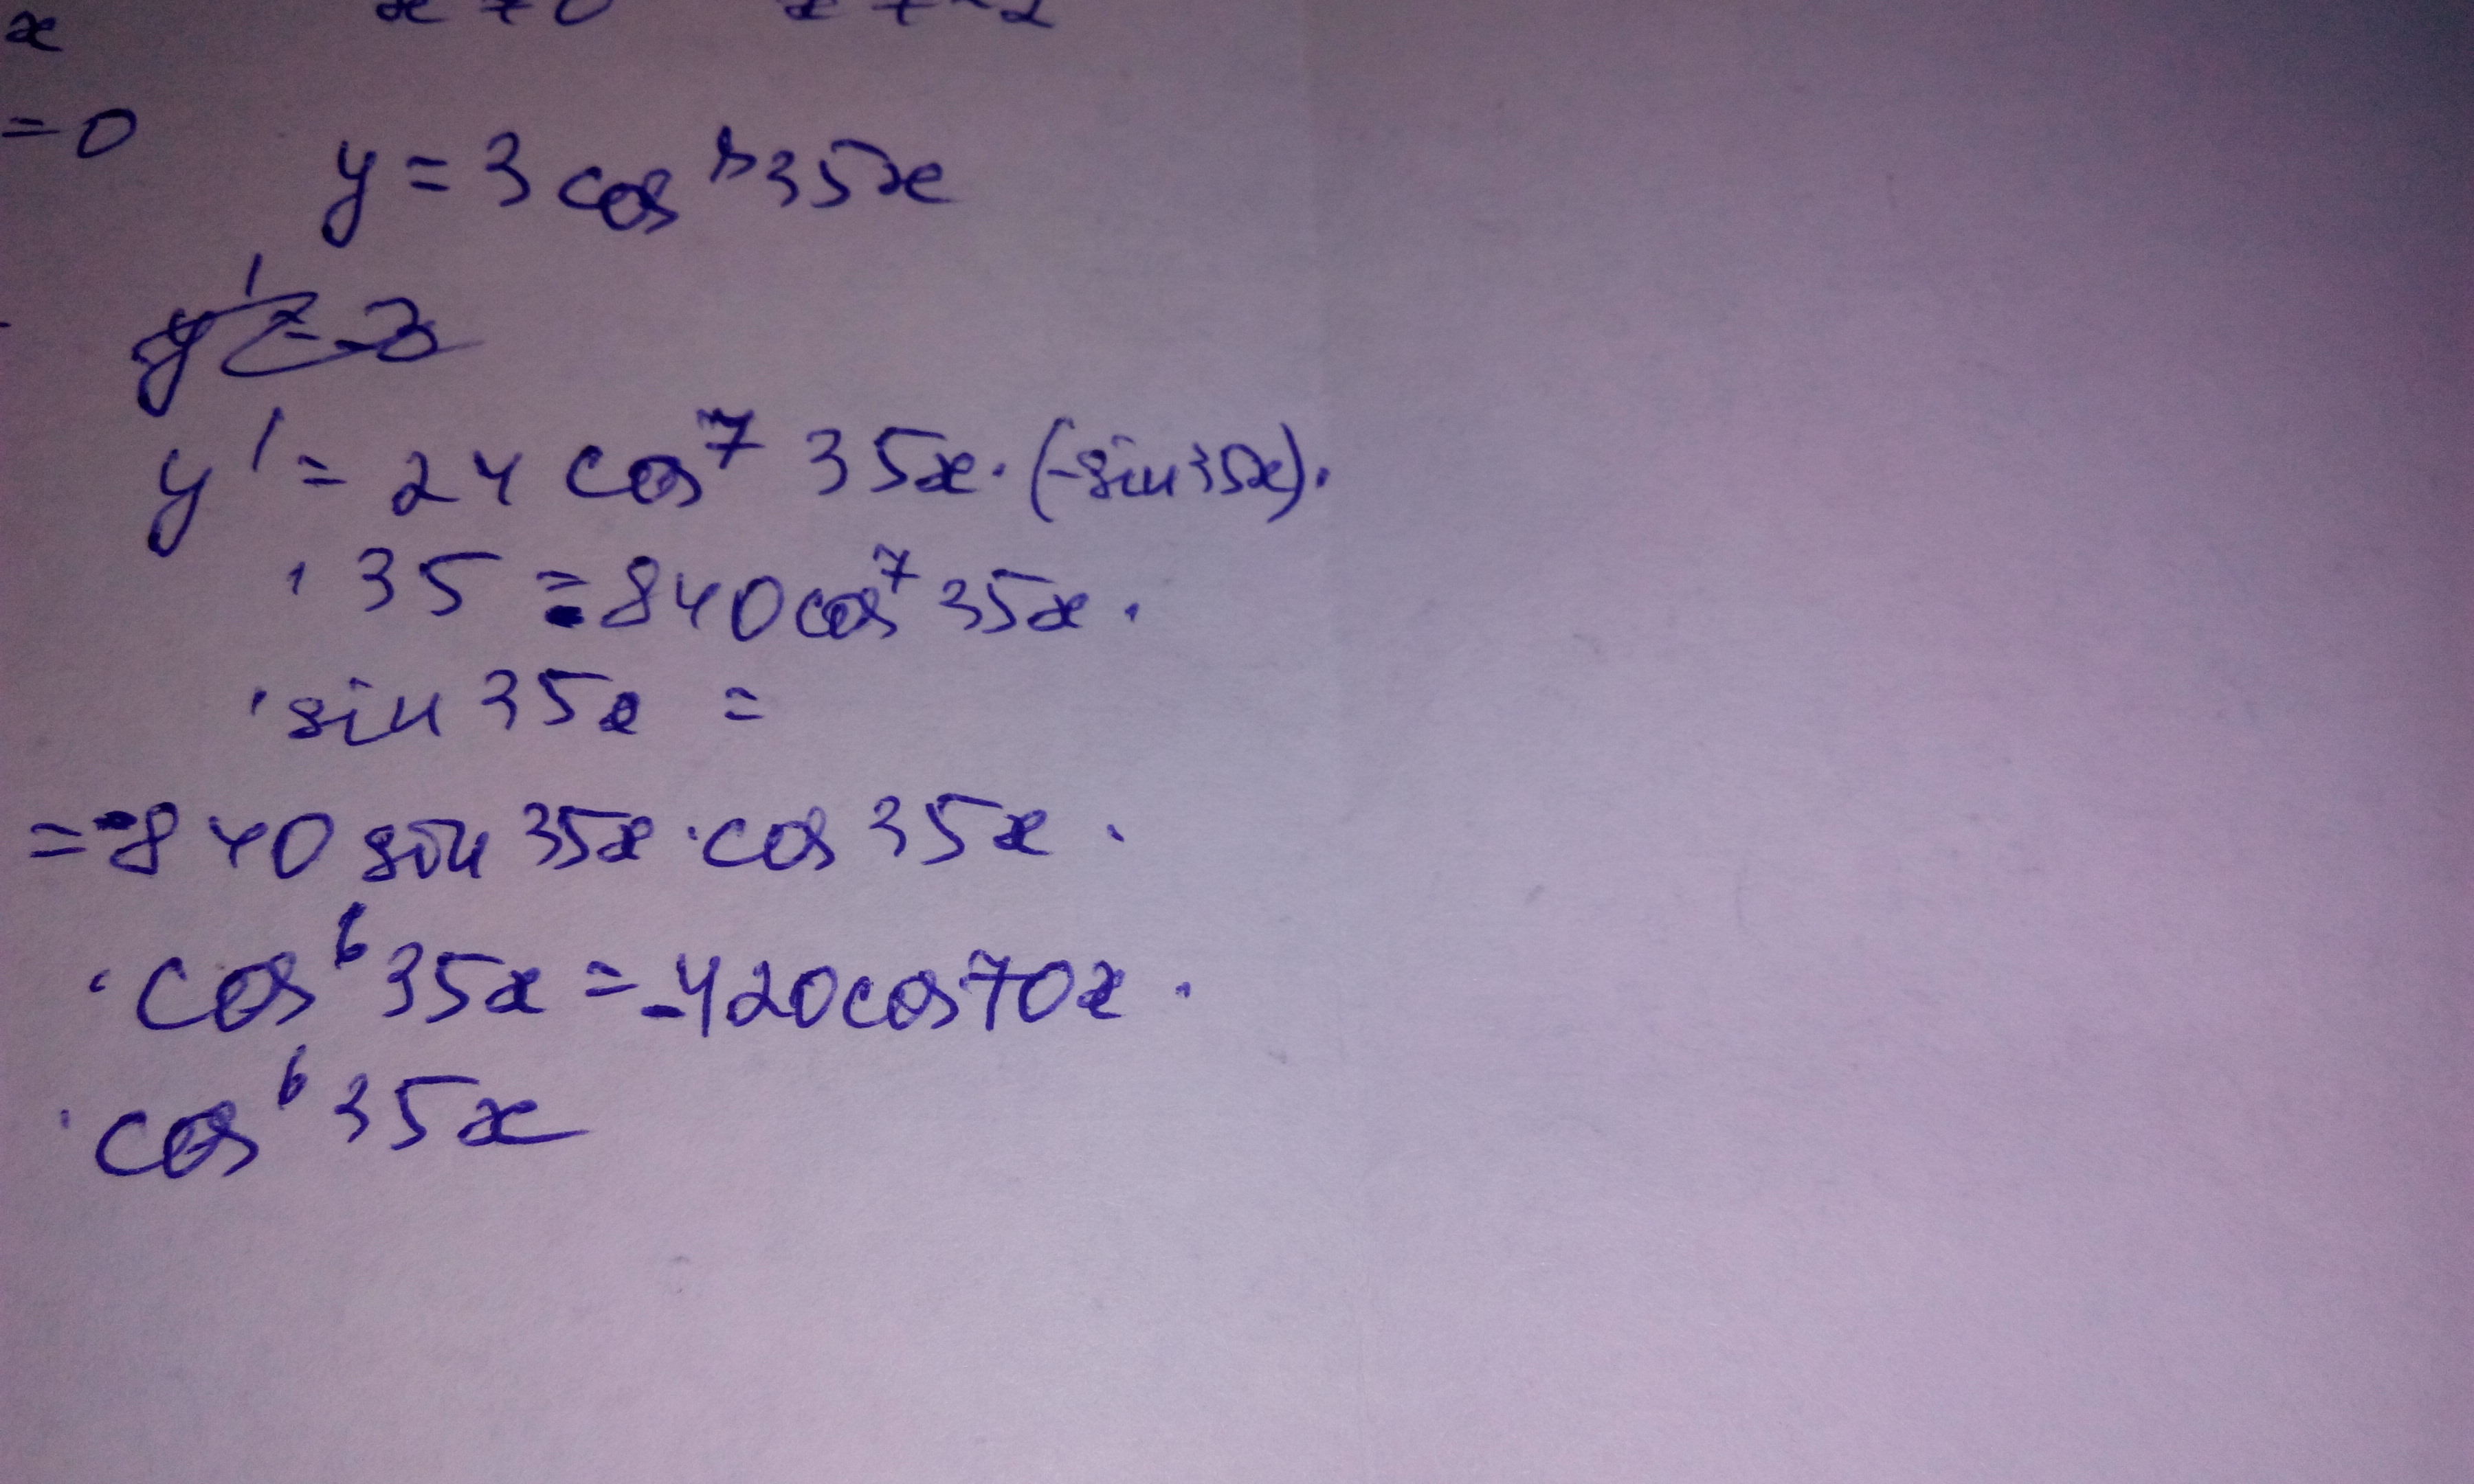 x
= 0
y = 3 cos⁸ 35x
y' = 24 cos⁷ 35x · (-sin 35x) ·
· 35 = 840 cos⁷ 35x ·
· sin 35x =
= -840 sin 35x · cos 35x ·
· cos⁶ 35x = -420 cos 70x ·
· cos⁶ 35x